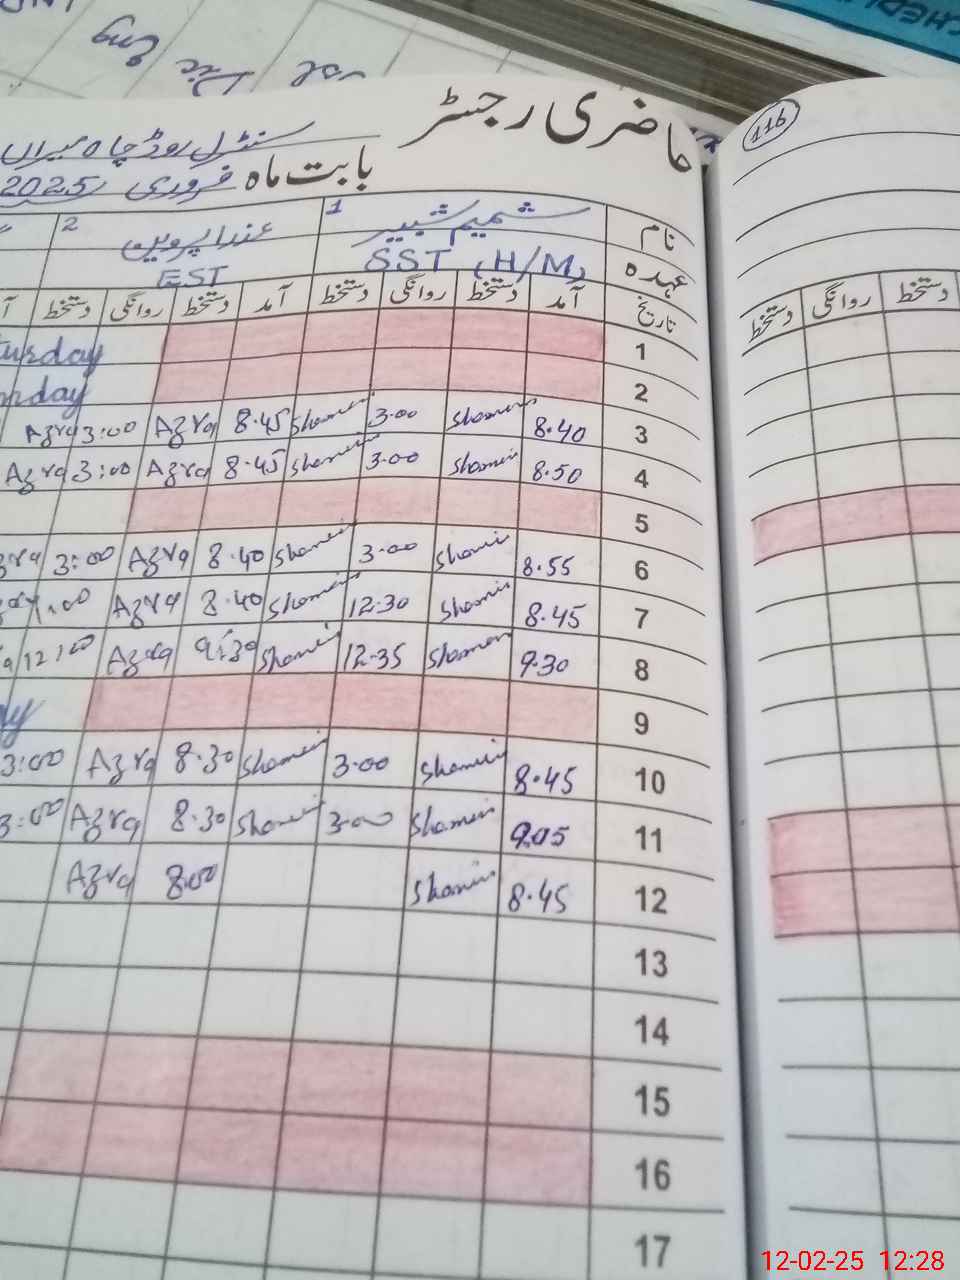 حاضری رجسٹر
سنٹرل روڈ چاہ میراں
بابت ماہ فروری 2025ء
116
نام 1 شمیم شبیر 2 عذرا پروین
عہدہ SST (H/M) EST
تاریخ آمد دستخط روانگی دستخط آمد دستخط روانگی دستخط آ
دستخط روانگی دستخط
1 turday
2 nday
3 8.40 Shamim 3.00 Shamim 8.45 Azra 3:00 Azra
4 8.50 Shamim 3.00 Shamim 8.45 Azra 3:00 Azra
5
6 8.55 Shamim 3.00 Shamim 8.40 Azra 3:00 zra
7 8.45 Shamim 12.30 Shamim 8.40 Azra 1:00
8 9.30 Shamim 12.35 Shamim 9:30 Azra 12:00
9
10 8.45 Shamim 3.00 Shamim 8.30 Azra 3:00
11 9.05 Shamim 3.00 Shamim 8.30 Azra 3:00
12 8.45 Shamim 8.00 Azra
13
14
15
16
17
12-02-25 12:28